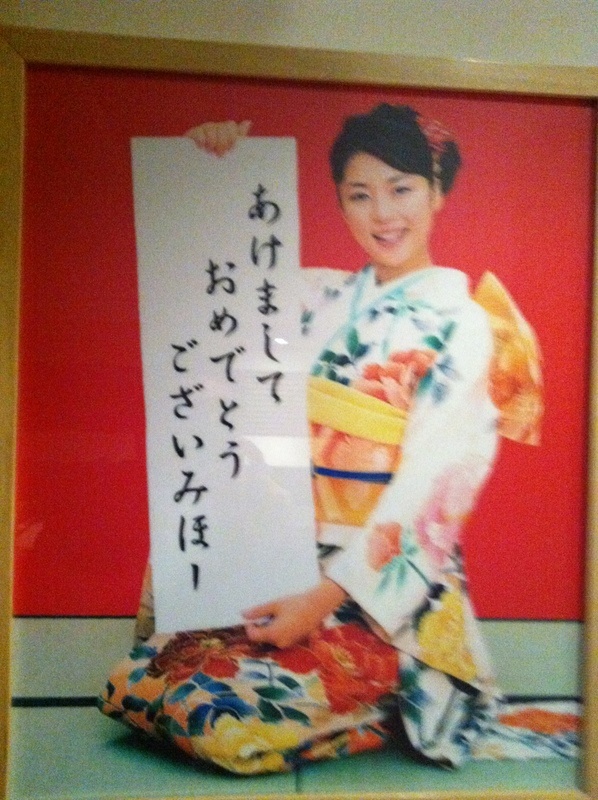 あけまして
おめでとう
ございみほー